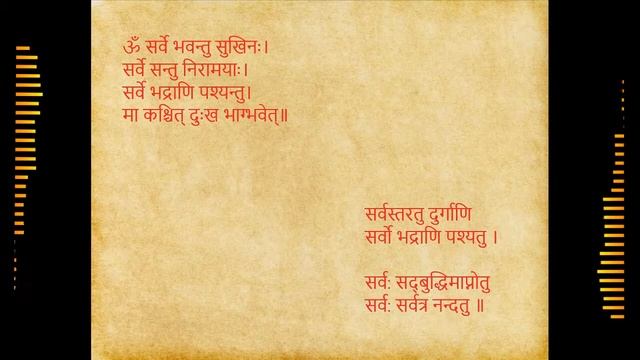 ॐ सर्वे भवन्तु सुखिनः।
सर्वे सन्तु निरामयाः।
सर्वे भद्राणि पश्यन्तु।
मा कश्चित् दुःख भाग्भवेत्॥
सर्वस्तरतु दुर्गाणि
सर्वो भद्राणि पश्यतु ।
सर्व: सद्बुद्धिमाप्नोतु
सर्व: सर्वत्र नन्दतु ॥